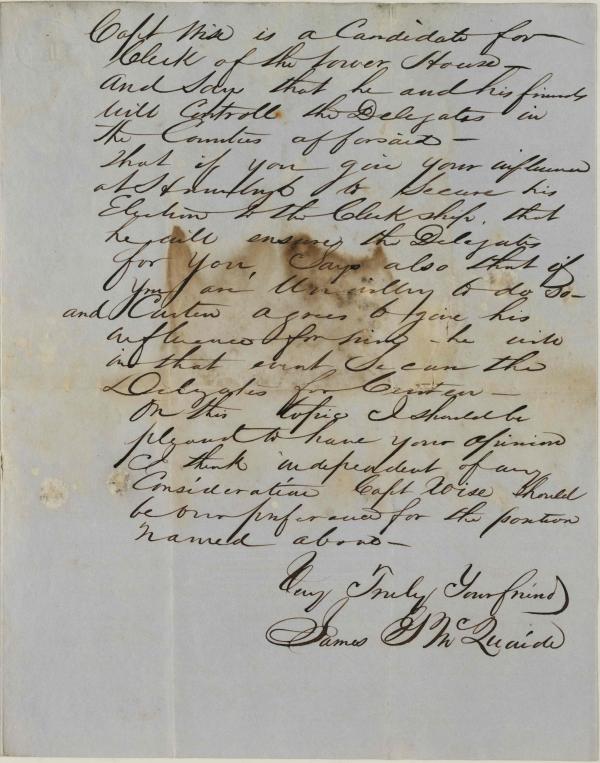 Capt Wise is a Candidate for
Clerk of the Lower House—
And Says that he and his friends
will Controll the Delegates in
the Counties afforsaid—
that if you give your influence
at Harrisburg to Secure his
Election to the Clerkship, that
he will ensure the Delegates
for you, Says also that if
you are Unwilling to do so—
and Curtin agrees to give his
influence for him - he will
in that event Secure the
Delegates for Curtin—
On this topic I should be
pleased to have your opinion
I think independent of any
Consideration Capt Wise should
be our preferance for the position
named above—
Very Truly Your friend
James McQuaide